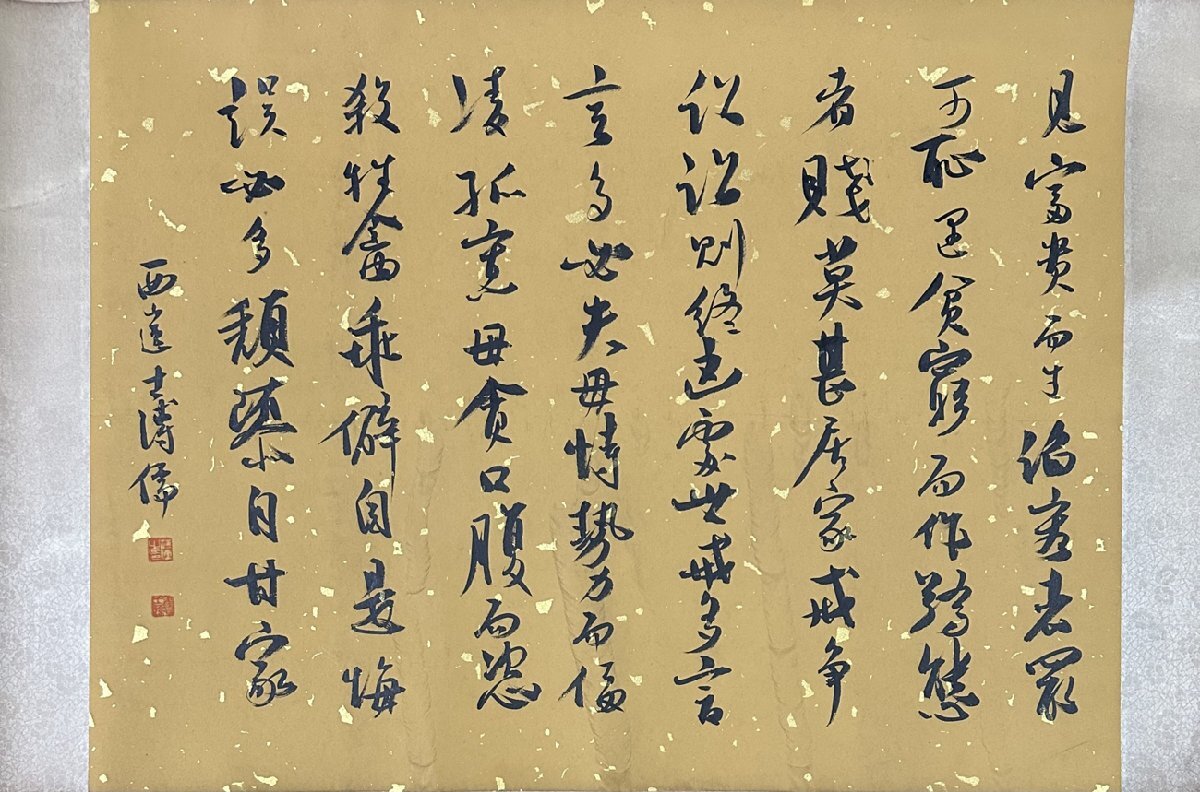 見富貴而生諂容者最
可恥遇貧窮而作驕態
者賤莫甚居家戒爭
訟訟則終凶處世戒多言
言多必失毋恃勢力而偪
凌孤寡毋貪口腹而恣
殺牲禽乖僻自是悔
誤必多頹自甘家
西山逸士溥儒